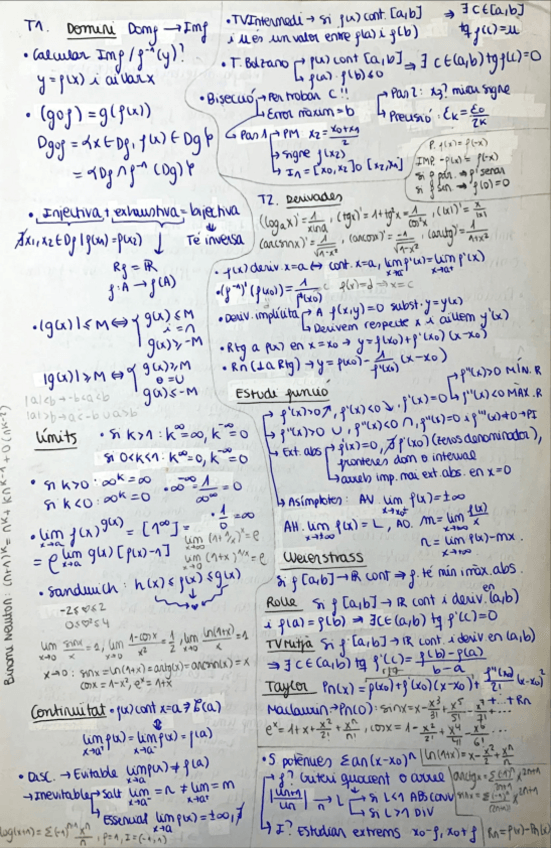 T1. Domini Domf → Imf
• Calcular Imf / f⁻¹(y)?
y=f(x) i aïllar x
• (g∘f) = g(f(x))
Dg∘f = {x ∈ Df, f(x) ∈ Dg}
= {Df ∩ f⁻¹(Dg)}
• Injectiva + exhaustiva = bijectiva
∄x1,x2 ∈ Df | f(x1)=f(x2)
Té inversa
Rf = ℝ
f: A → f(A)
• |g(x)| ≤ M ⇔ { g(x) ≤ M
i = ∩
g(x) ≥ -M
|g(x)| ≥ M ⇔ { g(x) ≥ M
o = ∪
g(x) ≤ -M
|a|<b → -b<a<b
|a|>b → a<-b ∪ a>b
Límits
• Si k>1: k^∞ = ∞, k^-∞ = 0
Si 0<k<1: k^∞ = 0, k^-∞
• Si k>0: ∞^k = ∞
Si k<0: ∞^k = 0
• ∞^-∞ = 1/∞^∞ = 0
• 1/0 = ∞
• lim x→a f(x)^g(x) = [1^∞] =
= e^lim x→a g(x)[f(x)-1]
lim x→∞ (1+1/x)^x = e
lim x→0 (1+x)^1/x = e
• Sandwich: h(x) ≤ f(x) ≤ g(x)
lim x→0 sinx/x = 1, lim x→0 1-cosx/x² = 1/2, lim x→0 ln(1+x)/x = 1
x→0: sinx = ln(1+x) = arctg(x) = arcsin(x) = x
cosx = 1-x², e^x = 1+x
Continuïtat • f(x) cont x=a ⇒ ∃f(a)
lim x→a⁻ f(x) = lim x→a⁺ f(x) = f(a)
• Disc. → Evitable lim f(x) ≠ f(a)
→ Inevitable → Salt lim x→a⁻ = n ≠ lim x→a⁺ = m
Essencial lim x→a f(x) = ±∞, ∄
Binomi Newton:
• TV Intermedi → Si f(x) cont. [a,b] ⇒ ∃ c ∈ [a,b]
i u és un valor entre f(a) i f(b) tq f(c)=u
• T. Bolzano → f(x) cont [a,b] ⇒ ∃ c ∈ (a,b) tq f(c)=0
f(a)·f(b)≤0
• Bisecció → Per trobar C!!
Error màxim = b
Pas 1 → PM x2 = x0+x1/2
Signe f(x2)
I1 = [x0,x2] o [x2,x1]
Pas 2: x3? mirar signe
Precisió: εk = ε0/2^k
P. f(x)=f(-x)
IMP. -f(x)=f(-x)
Si f par → f' senar
T2. Derivades
(loga x)' = 1/x ln a, (tgx)' = 1+tg²x = 1/cos²x, (|x|)' = x/|x|
(arcsinx)' = 1/√1-x², (arccosx)' = -1/√1-x², (arctg)' = 1/1+x²
• f(x) deriv. x=a ⇔ cont. x=a, lim x→a⁻ f'(x) = lim x→a⁺ f'(x)
• (f⁻¹)'(f(x0)) = 1/f'(x0)
• Deriv. implícita → A f(x,y)=0 subst. y=y(x)
Derivem respecte x i aïllem y'(x)
• Rtg a f(x) en x=x0 → y=f(x0)+f'(x0)(x-x0)
• Rn (⊥ a Rtg) → y=f(x0) - 1/f'(x0) (x-x0)
Estudi funció
f'(x)>0 ↗, f'(x)<0 ↘, f'(x)=0 → f''(x)>0 MÍN. R
f''(x)<0 MÀX. R
f''(x)>0 ∪, f''(x)<0 ∩, f''(x)=0 i f'''(x)≠0 → PI
Ext. abs → f'(x)=0, ∄f'(x) (zeros denominador),
fronteres dom o interval
Asímptotes: AV. lim x→a f(x) = ±∞
AH. lim x→∞ f(x) = L, AO. m = lim x→∞ f(x)/x
n = lim x→∞ f(x)-mx.
Weierstrass
Si f [a,b] → ℝ cont ⇒ f. té mín i màx. abs.
Rolle Si f [a,b] → ℝ cont i deriv. en (a,b)
i f(a)=f(b) ⇒ ∃ c ∈ (a,b) tq f'(c)=0
TV Mitjà Si f [a,b] → ℝ cont. i deriv en (a,b)
⇒ ∃ c ∈ (a,b) tq f'(c) = f(b)-f(a)/b-a
Taylor Pn(x) = f(x0)+f'(x0)(x-x0)+ f''(x0)/2! (x-x0)²
+...+Rn
Maclaurin → Pn(0): sinx = x - x³/3! + x⁵/5! - x⁷/7! + ...
e^x = 1+x+x²/2!+x^n/n!, cosx = 1 - x²/2! + x⁴/4! - x⁶/6! ...
• S potències Σan(x-x0)^n
ln(1+x) = x - x²/2 + x^n/n
f? Criteri quocient o arrel
|un+1/un| → L → Si L<1 ABS conv
Si L>1 DIV
I? Estudiar extrems x0-f, x0+f
Rn = f(x)-Pn(x)